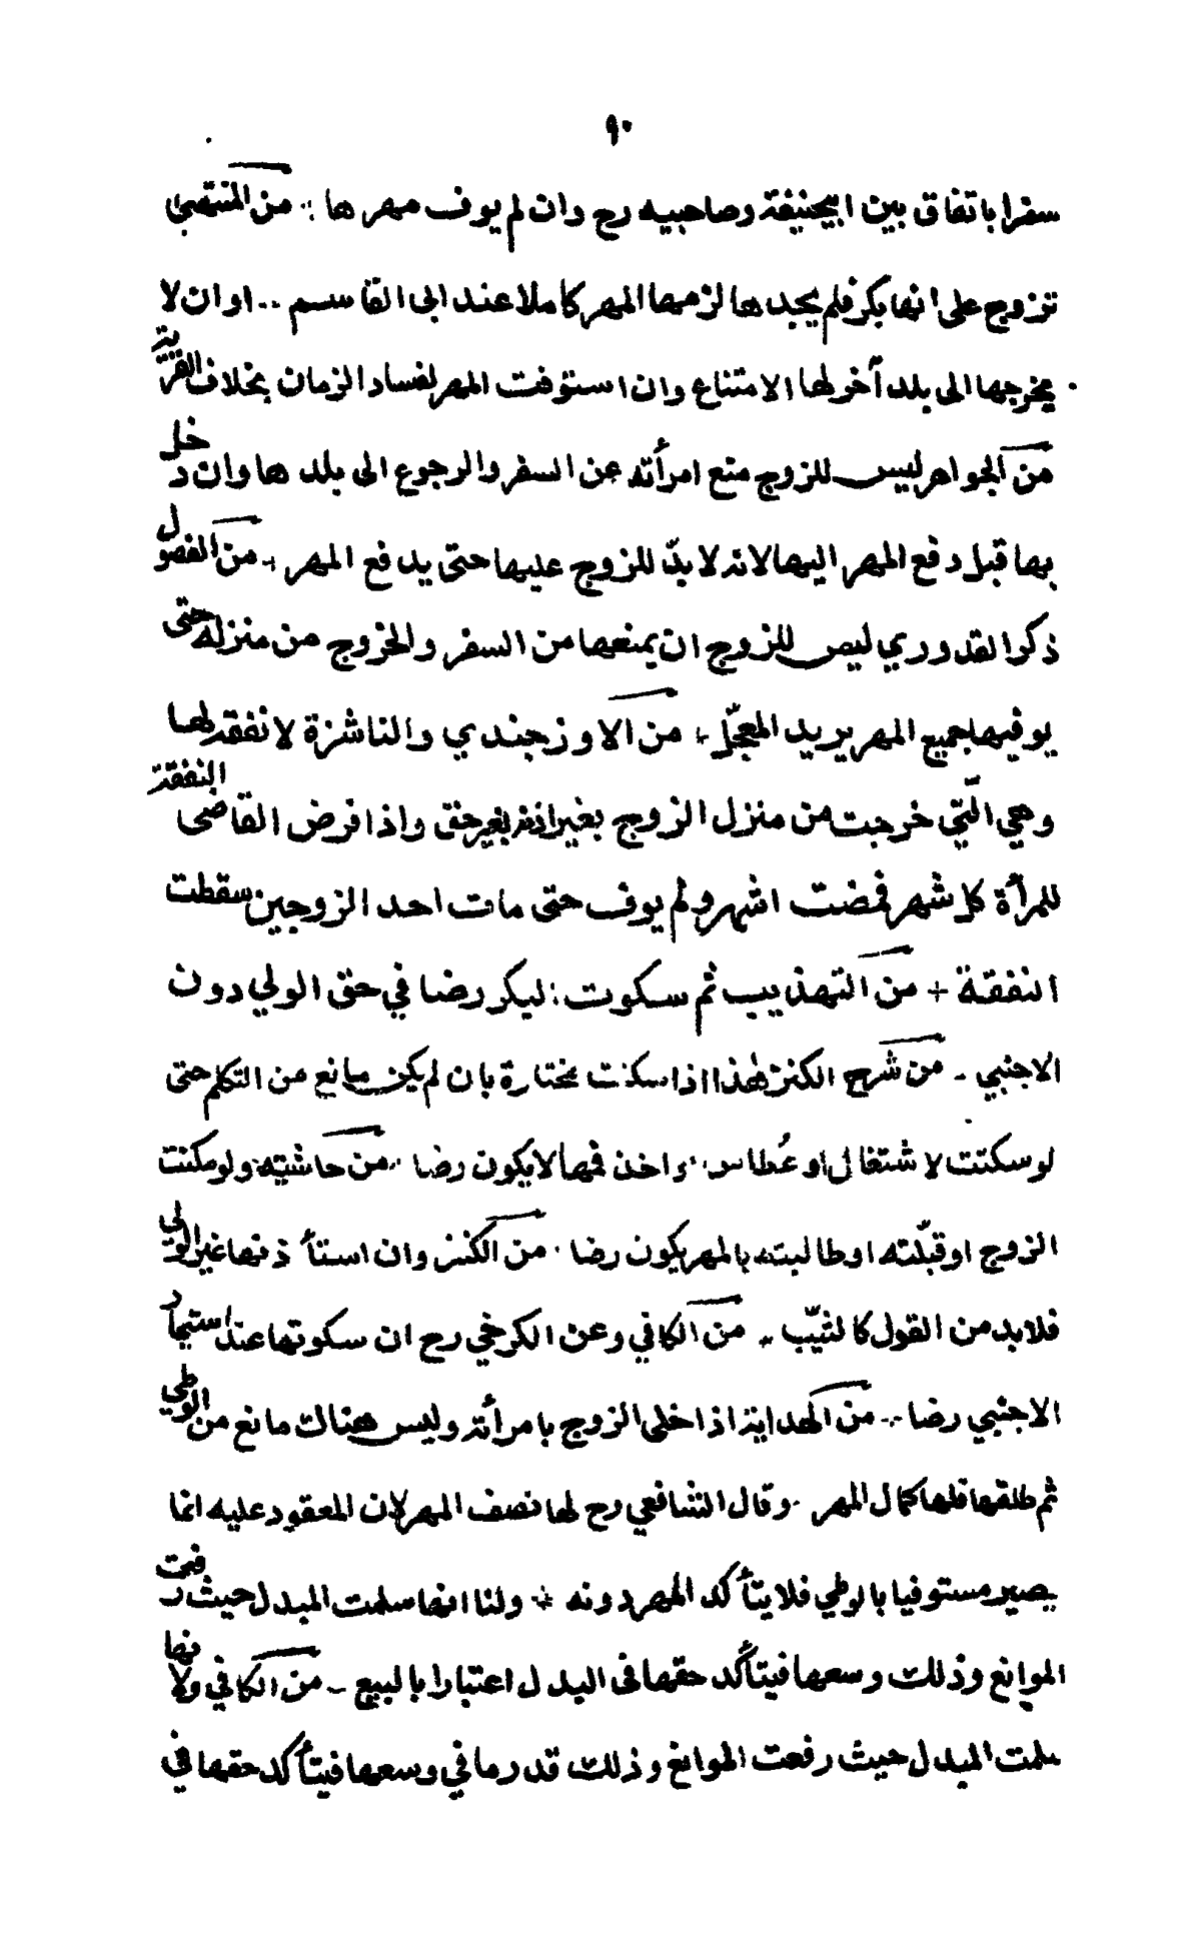 ٩٠
سفرا باتفاق بين ابيحنيفة وصاحبيه رح وان لم يوف مهرها من المنتهى
تزوج على انها بكر فلم يجدها لزمها المهر كاملا عند ابى القاسم او ان لا
يخرجها الى بلد آخر لها الامتناع وان استوفت المهر لفساد الزمان بخلاف القرية
من الجواهر ليس للزوج منع امرأته عن السفر والرجوع الى بلدها وان دخل
بها قبل دفع المهر اليها لانه لا يدّ للزوج عليها حتى يدفع المهر من الفصول
ذكر القدوري ليس للزوج ان يمنعها من السفر والخروج من منزله حتى
يوفيها جميع المهر يريد المعجّل من الاوزجندي والناشزة لا نفقة لها
وهي الّتي خرجت من منزل الزوج بغير اذنه بغير حق واذا فرض القاضى النفقة
للمرأة كل شهر فمضت اشهر ولم يوف حتى مات احد الزوجين سقطت
النفقة من التهذيب ثم سكوت البكر رضا في حق الولي دون
الاجنبي من شرح الكنز هذا اذا سكتت مختارة بان لم يكن مانع من التكلم حتى
لو سكتت لاشتغال او عُطاس واخذ فمها لا يكون رضا من حاشيته ولو مكنت
الزوج او قبّلته او طالبته بالمهر يكون رضا من الكنز وان استأذنها غير الولي
فلا بد من القول كالثيّب من الكافي وعن الكرخي رح ان سكوتها عند استيمار
الاجنبي رضا من الهداية اذا خلى الزوج بامرأته وليس هنالك مانع من الوطي
ثم طلقها فلها كمال المهر وقال الشافعي رح لها نصف المهر لان المعقود عليه انما
يصير مستوفيا بالوطي فلا يتأكد المهر دونه ولنا انها سلمت المبدل حيث رفعت
الموانع وذلك وسعها فيتأكد حقها فى البدل اعتبارا بالبيع من الكافي ولانها
سلمت المبدل حيث رفعت الموانع وذلك قدر ما في وسعها فيتأكد حقها في